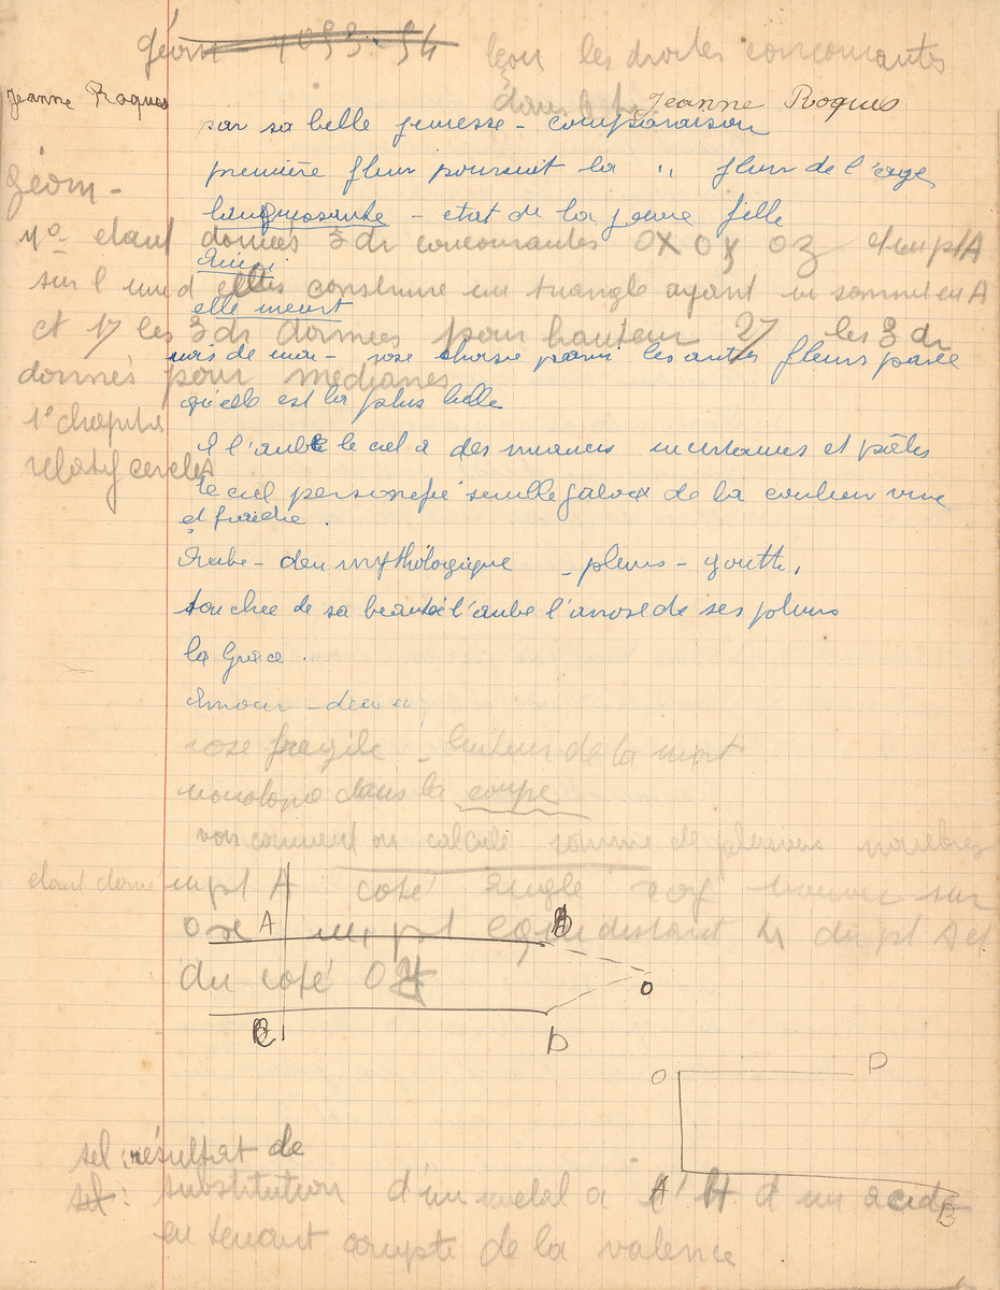 géom 1053-54 leçon les droites concourantes
Jeanne Roques
dans le Jeanne Roques
par sa belle jeunesse - comparaison
première fleur poursuit la " fleur de l'age
géom -
languissante - etat de la jeune fille
1º etant donnés 3 dr concourantes OX Oy Oz et un pt A
Ainsi
sur l'une d'elles construire un triangle ayant un sommet en A
elle meurt
et 1/ les 3 dr données pour hauteur 2/ les 3 dr
mois de mai - rose choisie parmi les autres fleurs parce
donnés pour médianes
qu'elle est la plus belle
1º chapitre
A l'aube le ciel a des nuances incertaines et pâles
relatif cercles
le ciel personnifié semble jaloux de la couleur vive
et fraiche .
Aube - dieu mythologique - pleurs - goutte,
touchée de sa beauté l'aube l'arrose de ses pleurs
la Grâce .
Amour - dieu
rose fragile - de la mort
dans la coupe
voir comment on calcule somme de plusieurs nombres
etant donné un pt A coté angle xoy trouver sur
ox A un pt equidistant du pt A et B
du coté Oy
O
C D
O D
sel : résultat de
sel : substitution d'un metal a l'H d'un acide
A B
en tenant compte de la valence